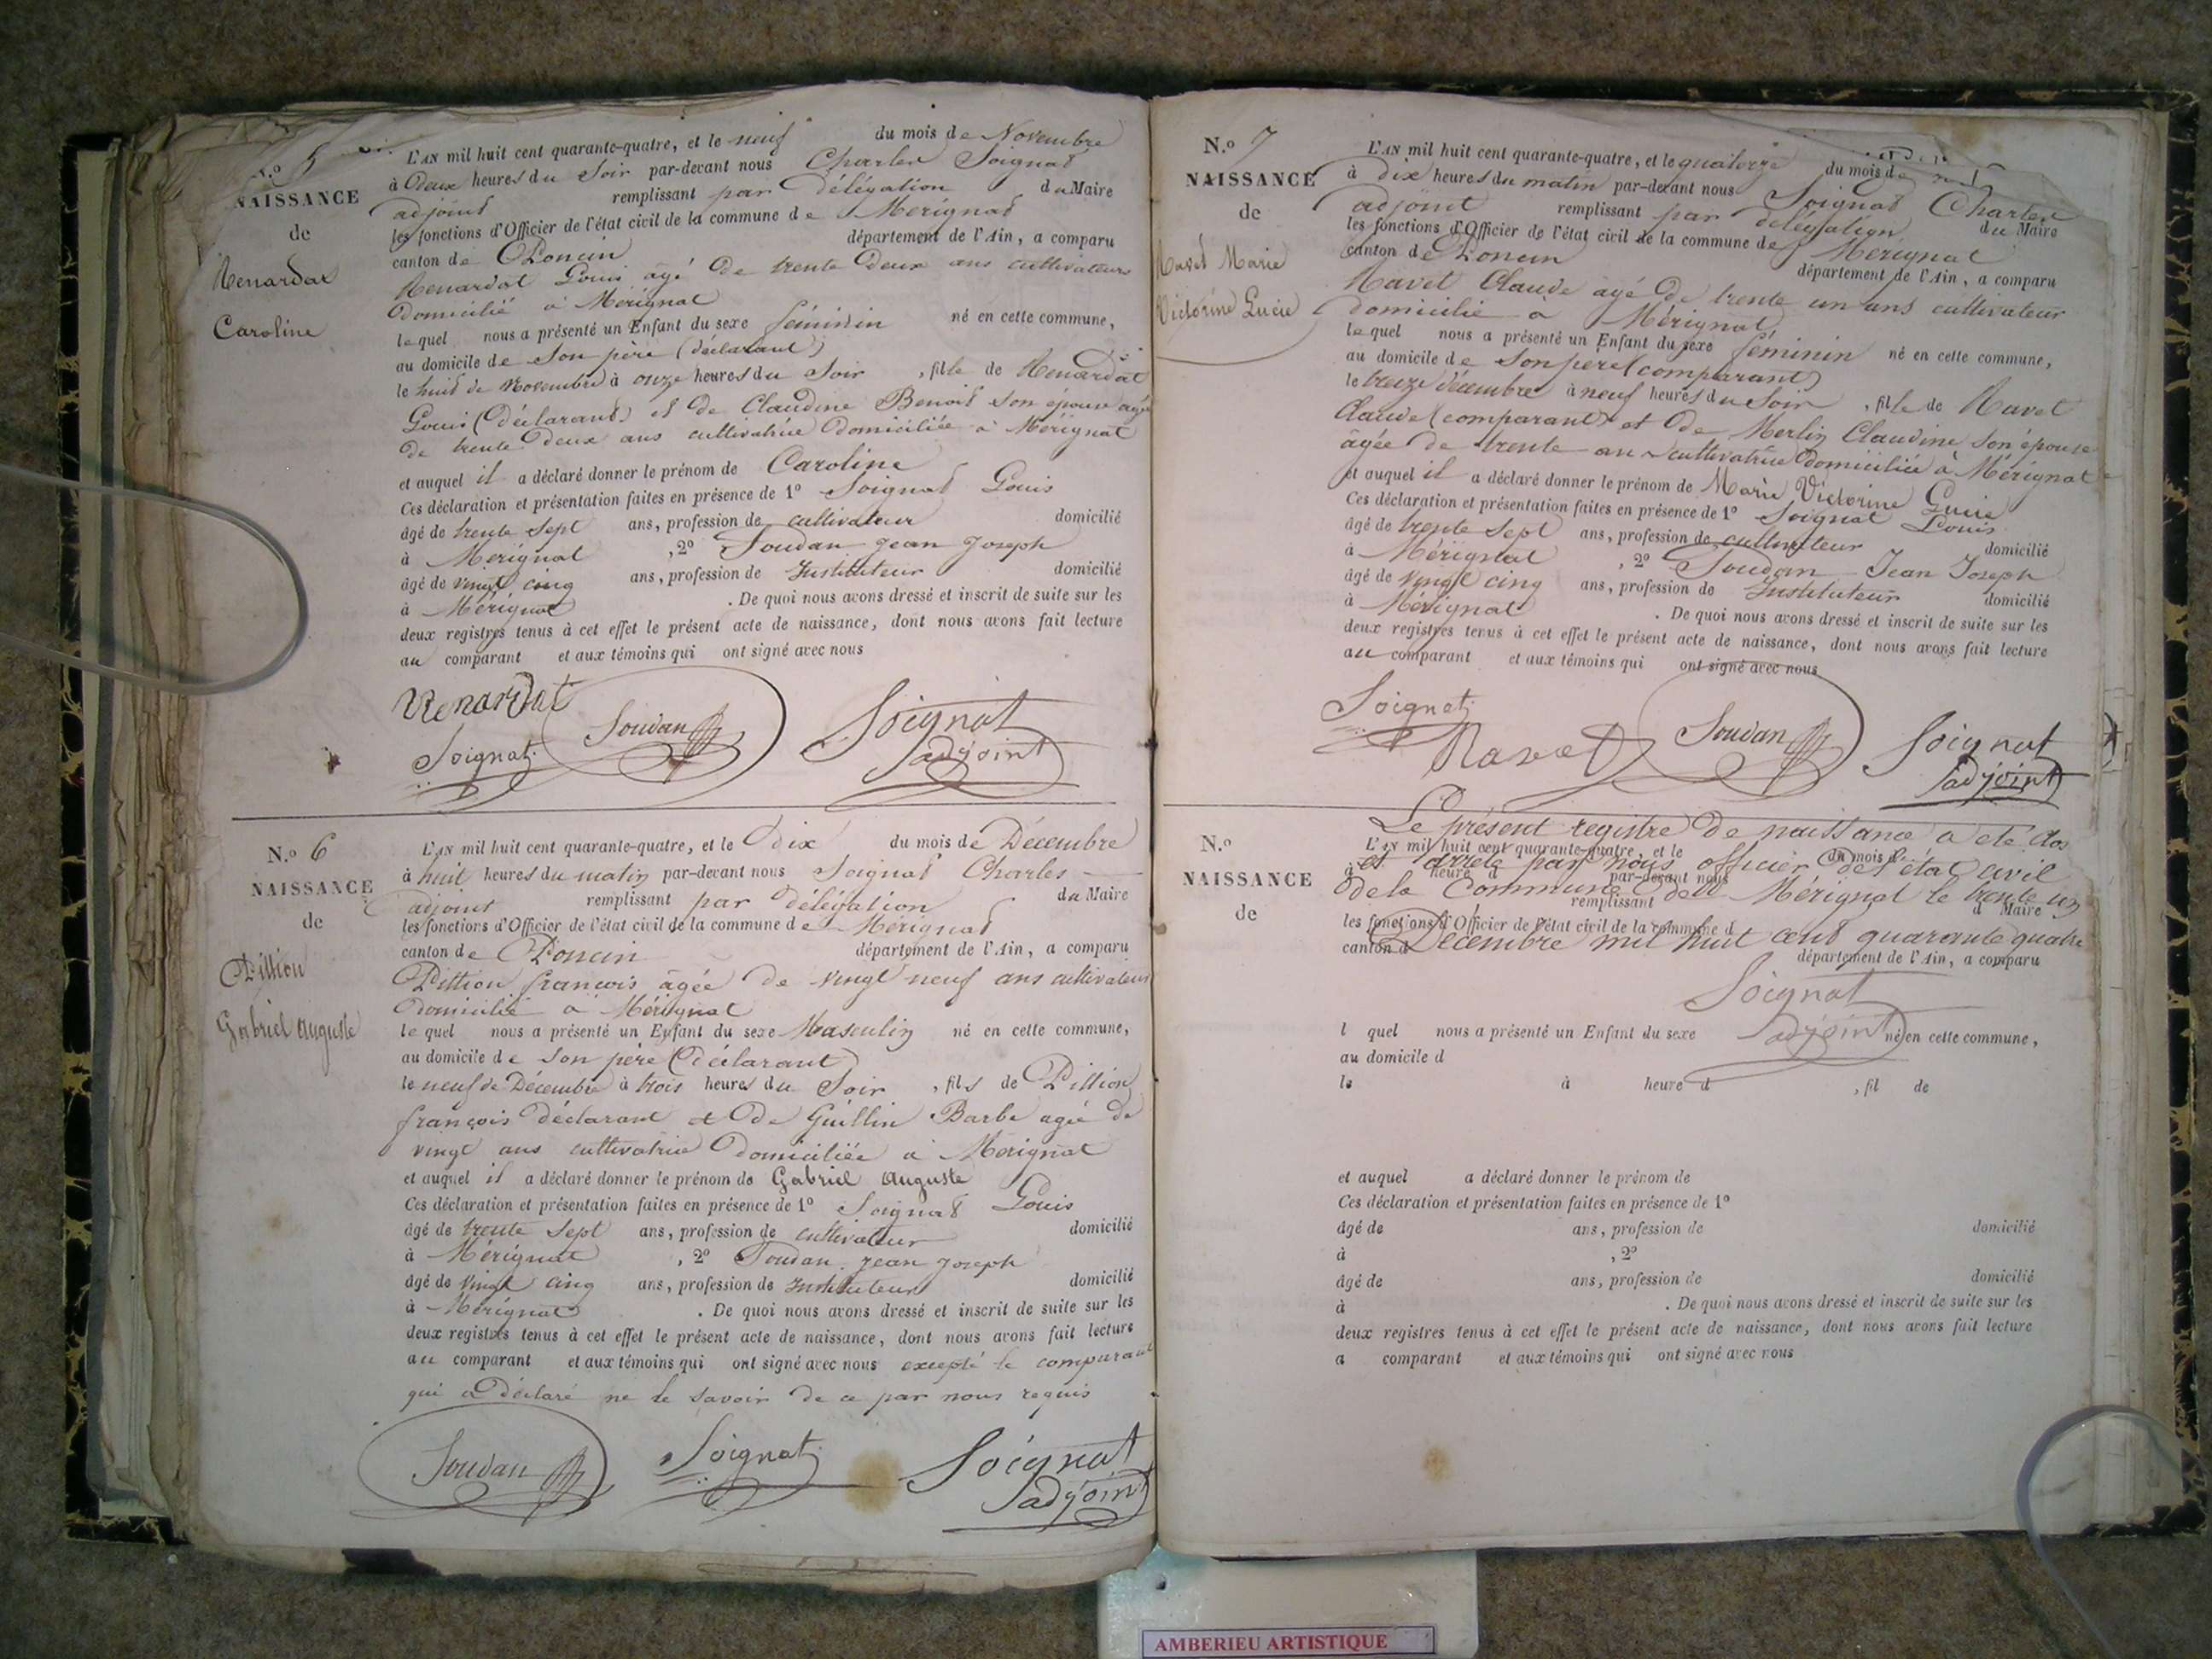 N.o 5
NAISSANCE
de
Renardat
Caroline
L'AN mil huit cent quarante-quatre, et le neuf du mois de Novembre
à Deux heures du Soir par-devant nous Charles Soignat
adjoint remplissant par délégation du Maire
les fonctions d'Officier de l'état civil de la commune de Mérignat
canton de Poncin département de l'Ain, a comparu
Renardat Louis âgé de trente deux ans cultivateur
domicilié à Mérignat
lequel nous a présenté un Enfant du sexe féminin né en cette commune,
au domicile de Son père (déclarant)
le huit de Novembre à onze heures du Soir , fille de Renardat
Louis (déclarant) et de Claudine Benoit son épouse agée
de trente deux ans cultivatrice domiciliée à Mérignat
et auquel il a déclaré donner le prénom de Caroline
Ces déclaration et présentation faites en présence de 1o Soignat Louis
âgé de trente sept ans, profession de cultivateur domicilié
à Mérignat , 2o Soudan jean joseph
âgé de vingt cinq ans, profession de Instituteur domicilié
à Mérignat . De quoi nous avons dressé et inscrit de suite sur les
deux registres tenus à cet effet le présent acte de naissance, dont nous avons fait lecture
au comparant et aux témoins qui ont signé avec nous
Renardat
Soudan
Soignat
Soignat
adjoint
N.o 6
NAISSANCE
de
Pittion
Gabriel auguste
L'AN mil huit cent quarante-quatre, et le dix du mois de Décembre
à huit heures du matin par-devant nous Soignat Charles
adjoint remplissant par délégation du Maire
les fonctions d'Officier de l'état civil de la commune de Mérignat
canton de Poncin département de l'Ain, a comparu
Pittion françois âgée de vingt neuf ans cultivateur
Domicilié à Mérignat
le quel nous a présenté un Enfant du sexe Masculin né en cette commune,
au domicile de son père (déclarant)
le neuf de Décembre à trois heures du Soir , fils de Pittion
françois déclarant et de Guillin Barbe agée de
vingt ans cultivatrice Domiciliée à Mérignat
et auquel il a déclaré donner le prénom de Gabriel auguste
Ces déclaration et présentation faites en présence de 1o Soignat Louis
âgé de trente sept ans, profession de cultivateur domicilié
à Mérignat , 2o Soudan jean joseph
âgé de vingt cinq ans, profession de Instituteur domicilié
à Mérignat . De quoi nous avons dressé et inscrit de suite sur les
deux registres tenus à cet effet le présent acte de naissance, dont nous avons fait lecture
au comparant et aux témoins qui ont signé avec nous excepté le comparant
qui a Déclaré ne le savoir de ce par nous requis
Soudan Soignat Soignat
adjoint
N.o 7
NAISSANCE
de
Ravet Marie
Victorine Lucie
L'AN mil huit cent quarante-quatre, et le quatorze du mois de
à dix heures du matin par-devant nous Soignat Charles
adjoint remplissant par délégation du Maire
les fonctions d'Officier de l'état civil de la commune de Mérignat
canton de Poncin département de l'Ain, a comparu
Ravet Claude agé de trente un ans cultivateur
domicilié à Mérignat
le quel nous a présenté un Enfant du sexe féminin né en cette commune,
au domicile de son père (comparant)
le treize décembre à neuf heures du Soir , fille de Ravet
Claude (comparant) et de Merlin Claudine son épouse
âgée de trente an cultivatrice domiciliée à Mérignat
et auquel il a déclaré donner le prénom de Marie Victorine Lucie
Ces déclaration et présentation faites en présence de 1o Soignat Louis
âgé de trente sept ans, profession de cultivateur domicilié
à Mérignat , 2o Soudan Jean Joseph
âgé de vingt cinq ans, profession de Instituteur domicilié
à Mérignat . De quoi nous avons dressé et inscrit de suite sur les
deux registres tenus à cet effet le présent acte de naissance, dont nous avons fait lecture
au comparant et aux témoins qui ont signé avec nous
Soignat
Ravet
Soudan
Soignat
adjoint
N.o
NAISSANCE
de
Le présent registre de naissance a été clos
L'AN mil huit cent quarante-quatre, et le du mois d
et arrêté par nous officier de l'état civil
à heure d par-devant nous
de la Commune de Mérignat le trente un
remplissant d Maire
les fonctions d'Officier de l'état civil de la commune d
Décembre mil huit cent quarante quatre
canton d département de l'Ain, a comparu
Soignat
adjoint
l quel nous a présenté un Enfant du sexe né en cette commune,
au domicile d
le à heure d , fil de
et auquel a déclaré donner le prénom de
Ces déclaration et présentation faites en présence de 1o
âgé de ans, profession de domicilié
à , 2o
âgé de ans, profession de domicilié
à . De quoi nous avons dressé et inscrit de suite sur les
deux registres tenus à cet effet le présent acte de naissance, dont nous avons fait lecture
a comparant et aux témoins qui ont signé avec nous
AMBERIEU ARTISTIQUE